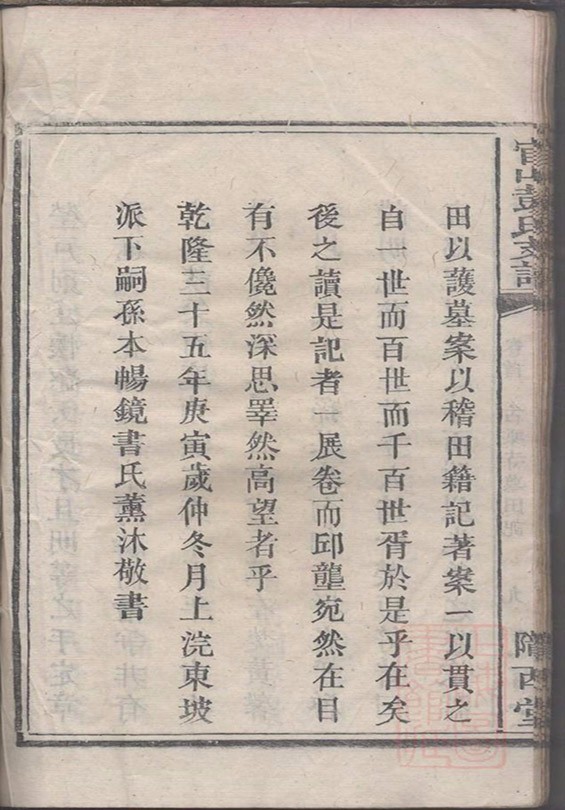 官山彭氏支譜
隴西堂
田以護墓案以稽田籍記著案一以貫之
自一世而百世而千百世胥於是乎在矣
後之讀是記者一展卷而邱壟宛然在目
有不儳然深思睪然高望者乎
乾隆三十五年庚寅歲仲冬月上浣東坡
派下嗣孫本暢鏡書氏薰沐敬書